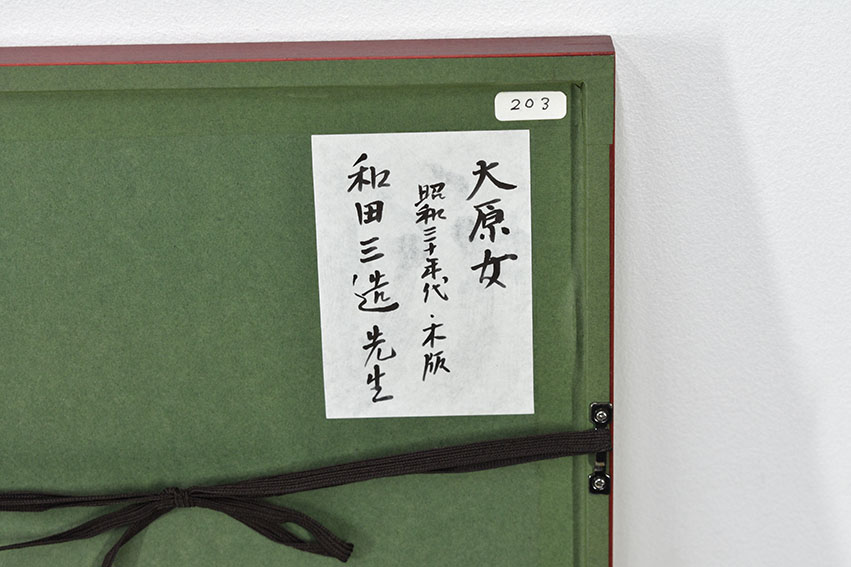 203
大原女
昭和三十年代・木版
和田三造先生